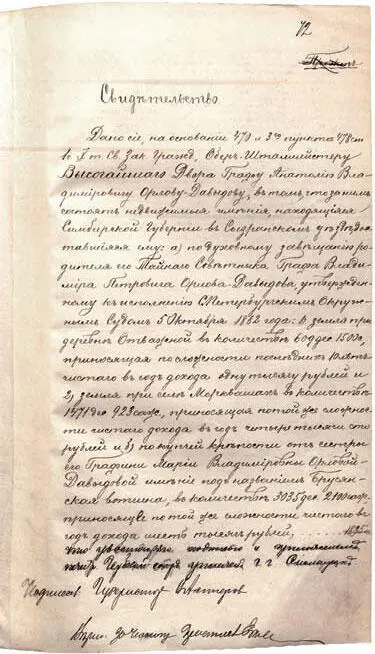 72
Свидѣтельство.
Дано сіе, на основаніи 470 и 3го пункта 478 ст
въ X т Св. Зак Гражд, Оберъ-Шталмейстеру
Высочайшаго Двора Графу Анатолію Вла-
диміровичу Орлову-Давыдову, въ томъ, что за нимъ
состоятъ недвижимыя имѣнія находящіяся
Симбирской Губерніи въ Сызранскомъ уѣздѣ до
ставшіяся ему: а) по духовному завѣщанію ро-
дителя его Тайнаго Совѣтника Графа Влади-
міра Петровича Орлова-Давыдова, утвержден-
ному къ исполненію С.Петербургскимъ Окруж-
нымъ Судомъ 5 Октября 1882 года: земля при
деревнѣ Отважной въ количествѣ 60 дес 150 с,
приносящая по сложности послѣднихъ 10 лѣтъ
чистаго въ годъ дохода одну тысячу рублей и
2) земля при селѣ Морквашахъ въ количествѣ
1571 дес 923 саж, приносящая по той же сложнос
ти чистаго дохода въ годъ четыре тысячи сто
рублей и 3) по купчей крѣпости отъ сестры
его Графини Маріи Владиміровны Орловой-
Давыдовой имѣніе подъ названіемъ Брусян-
ская вотчина, въ количествѣ 3035 дес. 2100 саж.
приносящее по той же сложности чистаго въ
годъ дохода шесть тысячъ рублей,
что
и